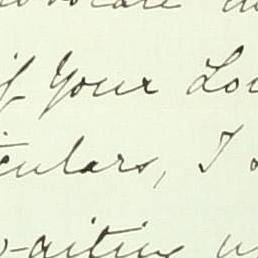 if Your Lo
iculars, I
waiting u